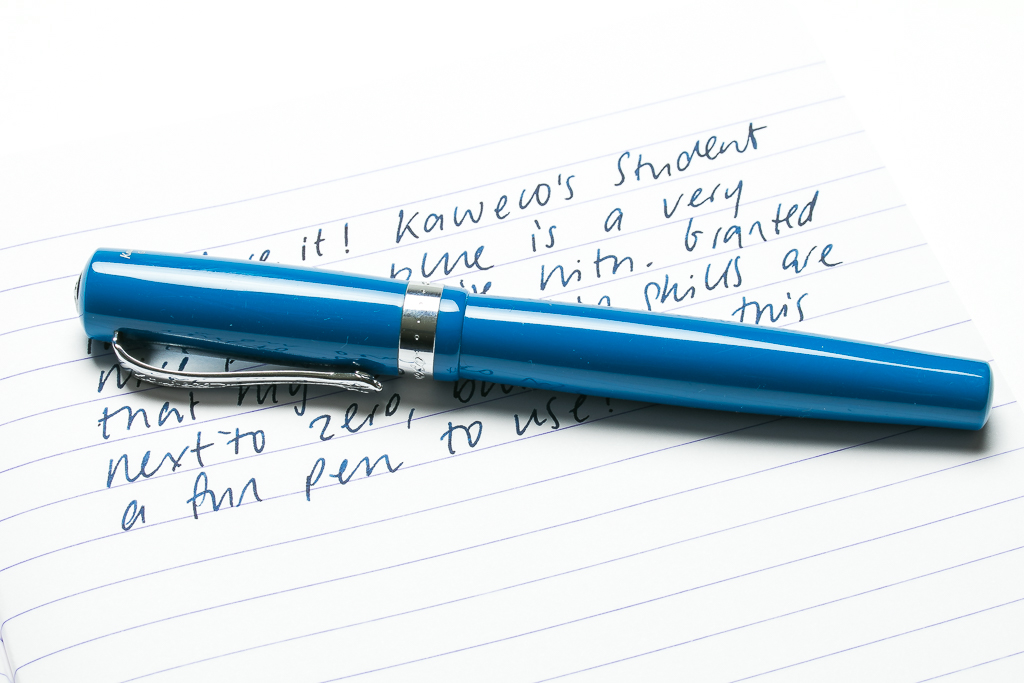 it! Kaweco's Student
blue is a very
with. Granted
skills are
this
that my
next to zero,
a fun pen to use!